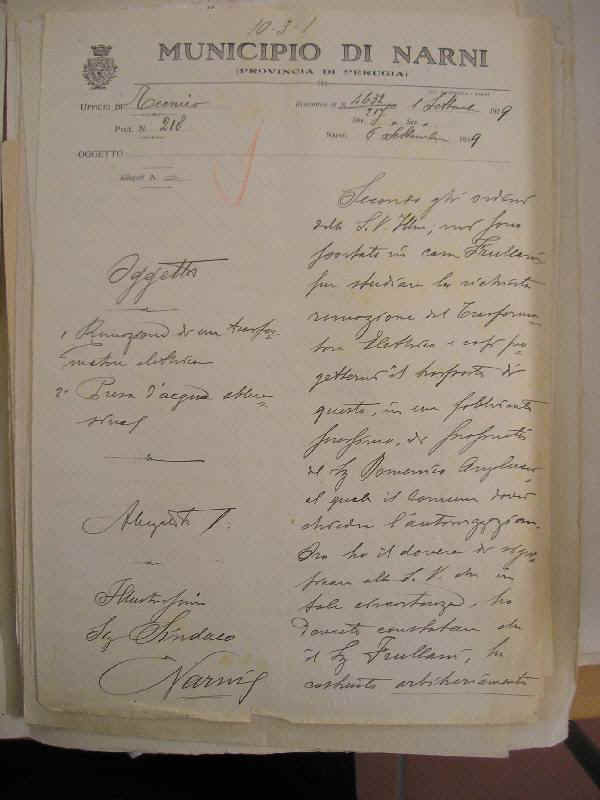 10-3-1
MUNICIPIO DI NARNI
(PROVINCIA DI PERUGIA)
UFFICIO DI Tecnico
RISPOSTA A N. 4632 1 Settembre 1929
Prot. N. 218
Div. Sez.
NARNI, 6 Settembre 1929
OGGETTO
Allegati N.
Secondo gli ordini
della S. V. Ill.ma, mi sono
portato in casa Frullani
per studiare la richiesta
rimozione del Trasforma-
tore Elettrico e così pro-
gettarmi il trasporto di
questo, in un fabbricato
prossimo, di proprietà
del Sig Domenico
al quale il Comune dovrà
chiedere l'autorizzazione.
Ora ho il dovere di signi-
ficare alla S. V. che in
tale circostanza, ho
dovuto constatare che
il Sig Frullani, ha
costruito arbitrariamente
Oggetto
1 Rimozione di un trasfor-
matore elettrico
2° Presa d'acqua abbu-
siva
Allegati 1.
Illustrissimo
Sig Sindaco
Narni